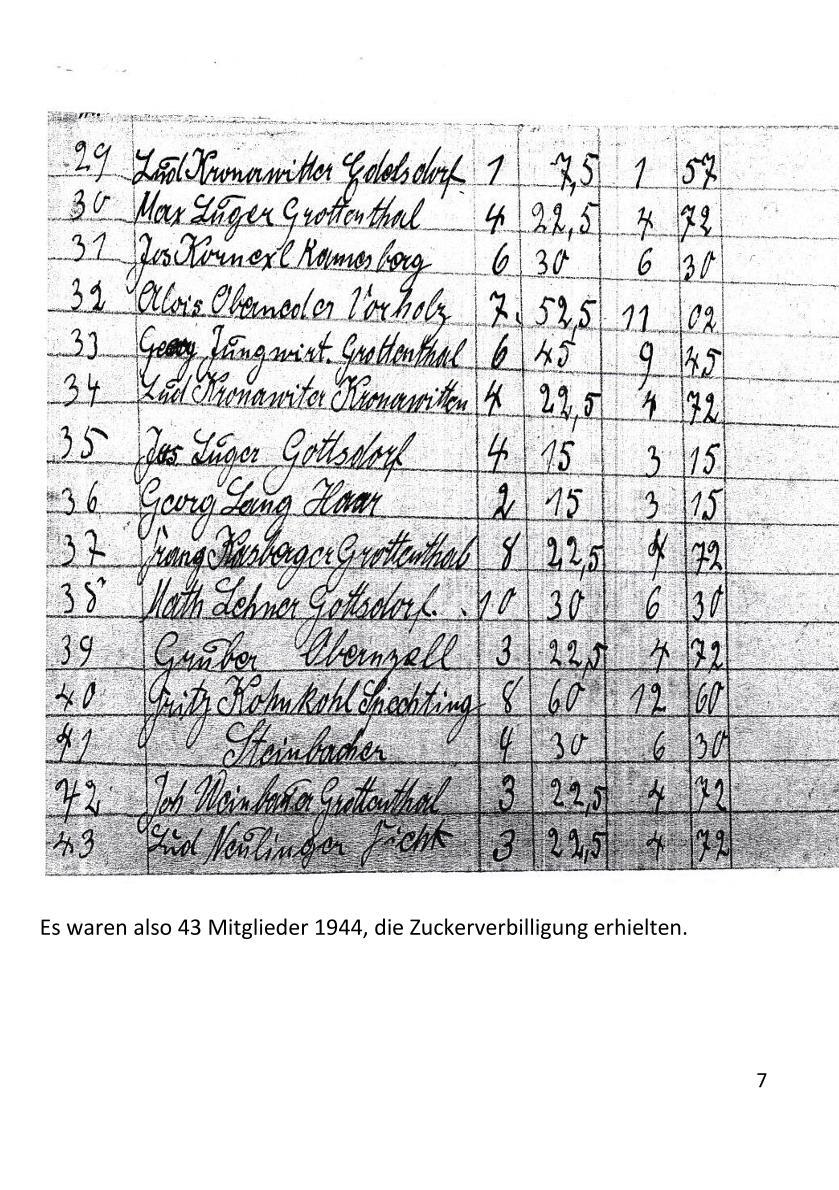 29 Lud Kronawitter Edelsdorf 1 7,5 1 57
30 Max Luger Grottenthal 4 22,5 4 72
31 Jos Kornexl Ramesberg 6 30 6 30
32 Alois Oberneder Vorholz 7. 52,5 11 02
33 Georg Jungwirt. Grottenthal 6 45 9 45
34 Lud Kronawiter Kronawitten 4 22,5 4 72
35 Jos Luger Gottsdorf 4 15 3 15
36 Georg Lang Haar 2 15 3 15
37 Franz Kasberger Grottenthal 8 22,5 4 72
38 Math Lehner Gottsdorf. 10 30 6 30
39 Gruber Obernzell 3 22,5 4 72
40 Fritz Kohnkohl Spechting 8 60 12 60
41 Steinbacher 4 30 6 30
42 Joh Weinbauer Grottenthal 3 22,5 4 72
43 Lud Neulinger Ficht 3 22,5 4 72
Es waren also 43 Mitglieder 1944, die Zuckerverbilligung erhielten.
7